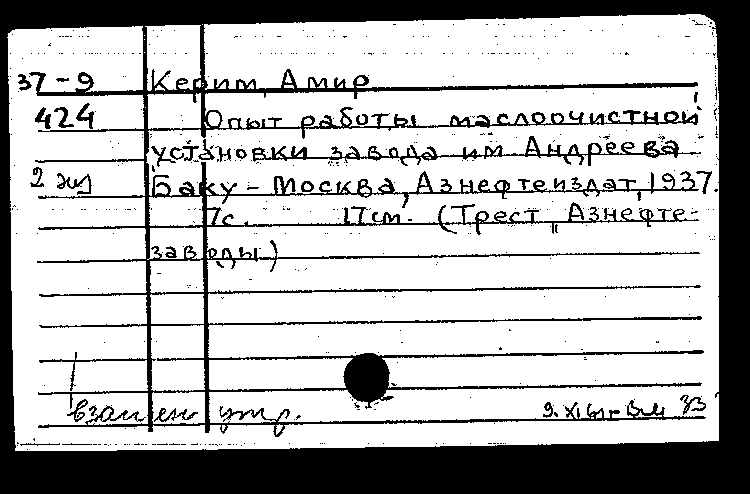 37-9 Керим, Амир
424 Опыт работы маслоочистной
установки завода им Андреева
2 экз Баку - Москва, Азнефтеиздат, 1937.
7с. 17см. (Трест „Азнефте-
заводы)
взамен утр.